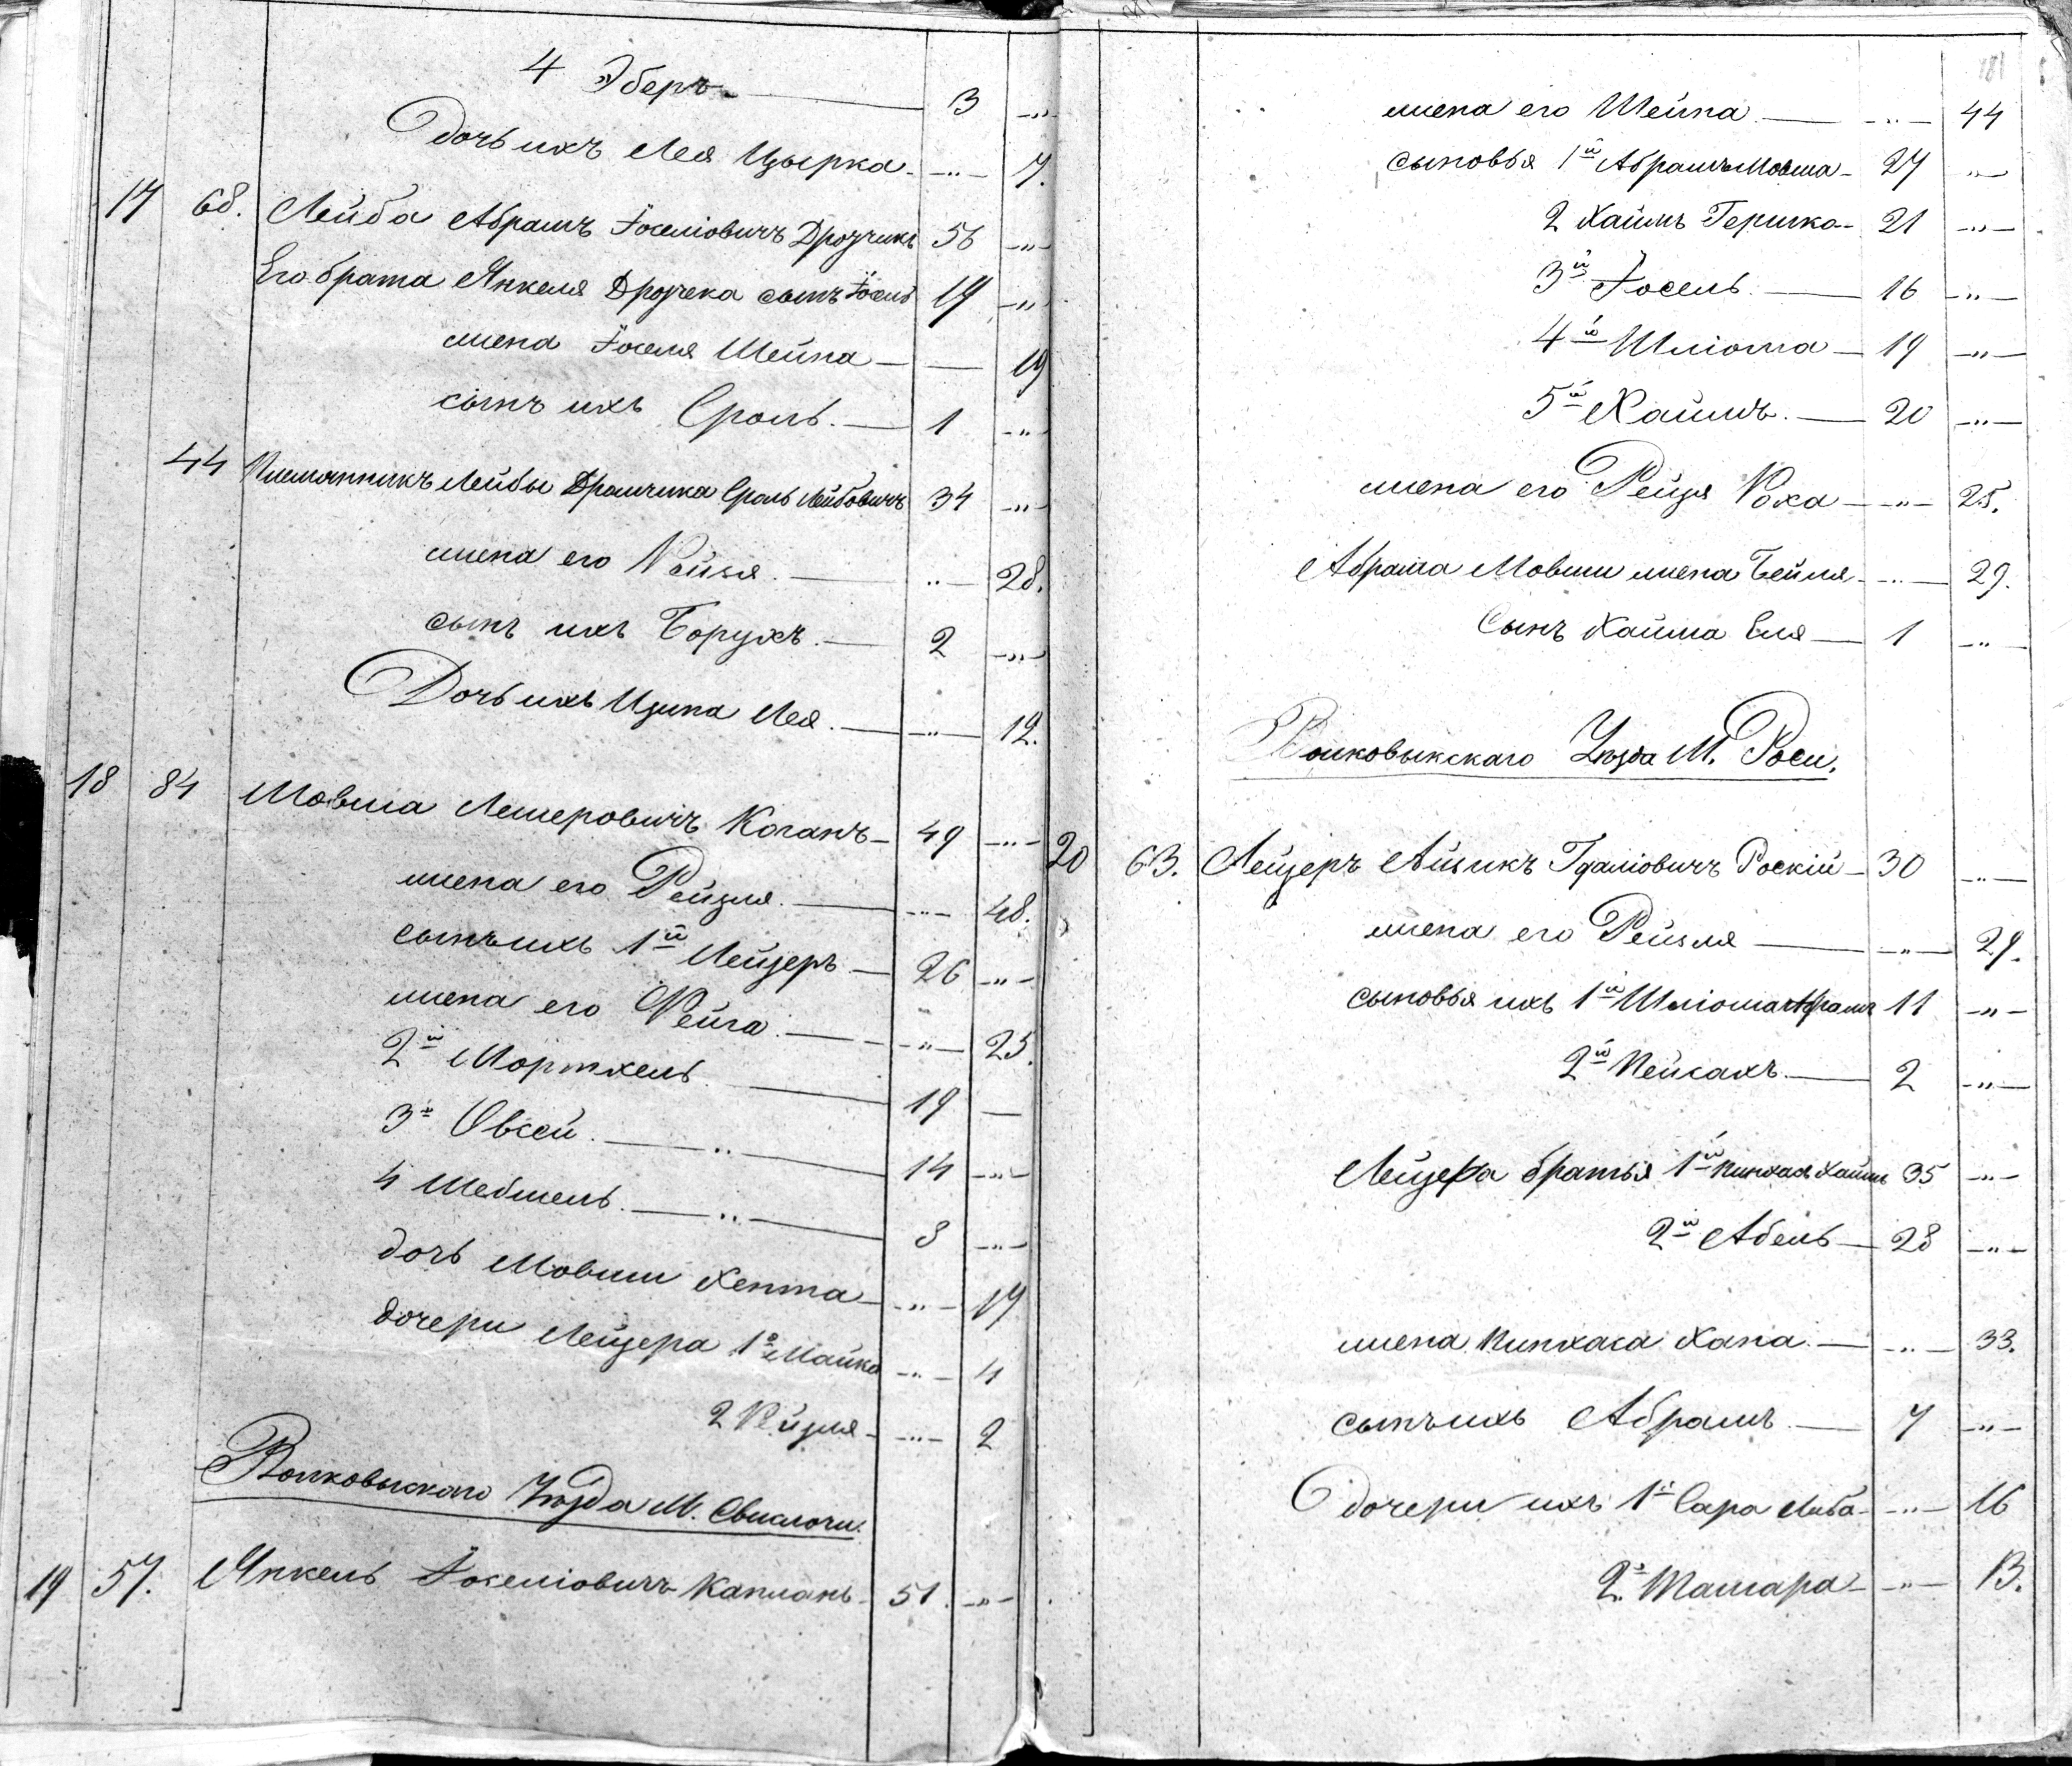 4 Эберъ — 3 -"-
Дочь ихъ Лея Цырка — -"- 7.
17 68. Лейба Абрамъ Іоселіовичъ Дрозчикъ 56 -"-
Его брата Янкеля Дрозчека сынъ Іосель 19 -"-
жена Іоселя Шейна — 19
сынъ ихъ Сроль. — 1 -"-
44 Племянникъ Лейбы Сроль Лейбовичъ 34 -"-
жена его — -"- 28.
сынъ ихъ Борухъ. — 2 -"-
Дочь ихъ Лея. — -"- 12.
18 84 Мовша Лемеровичъ Коганъ — 49 -"-
жена его Рейзля. — -"- 48.
сынъ ихъ 1й Лейзеръ — 26 -"-
жена его Фейга. — -"- 25.
2й Мортхель. — 19 —
3й Овсей. — 14 -"-
4 Шебшель. — 8 -"-
дочь Мовши Хента — -"- 17
дочери Лейзера 1я Майка -"- 4
2 — -"- 2
Волковыскаго Уѣзда М. Свислочи.
19 57. Янкель Іоселіовичъ Капланъ 51. -"-
181
жена его Шейна — -"- 44
сыновья 1й Абрамъ Мовша — 27 -"-
2 Хаимъ Гершко — 21 -"-
3й Іосель. — 16 -"-
4й Шліома — 19 -"-
5й Хаимъ. — 20 -"-
жена его Рейзя Роха — -"- 25.
Абрама Мовши жена Бейля — -"- 29.
Сынъ Хаима Еля — 1 -"-
Волковыкскаго Уѣзда М. Роси.
20 63. Лейзеръ Айзикъ Гдаліовичъ Роскій — 30 -"-
жена его Рейзля — -"- 29.
сыновья ихъ 1й Шліома Абрамъ 11 -"-
2й Пейсахъ. — 2 -"-
Лейзера братья 1й Пинхасъ Хаимъ 35 -"-
2й Абель — 28 -"-
жена Пинхаса Хана. — -"- 33.
сынъ ихъ Абрамъ — 7 -"-
дочери ихъ 1я Сара Либа — -"- 16
2я Тамара — -"- 13.